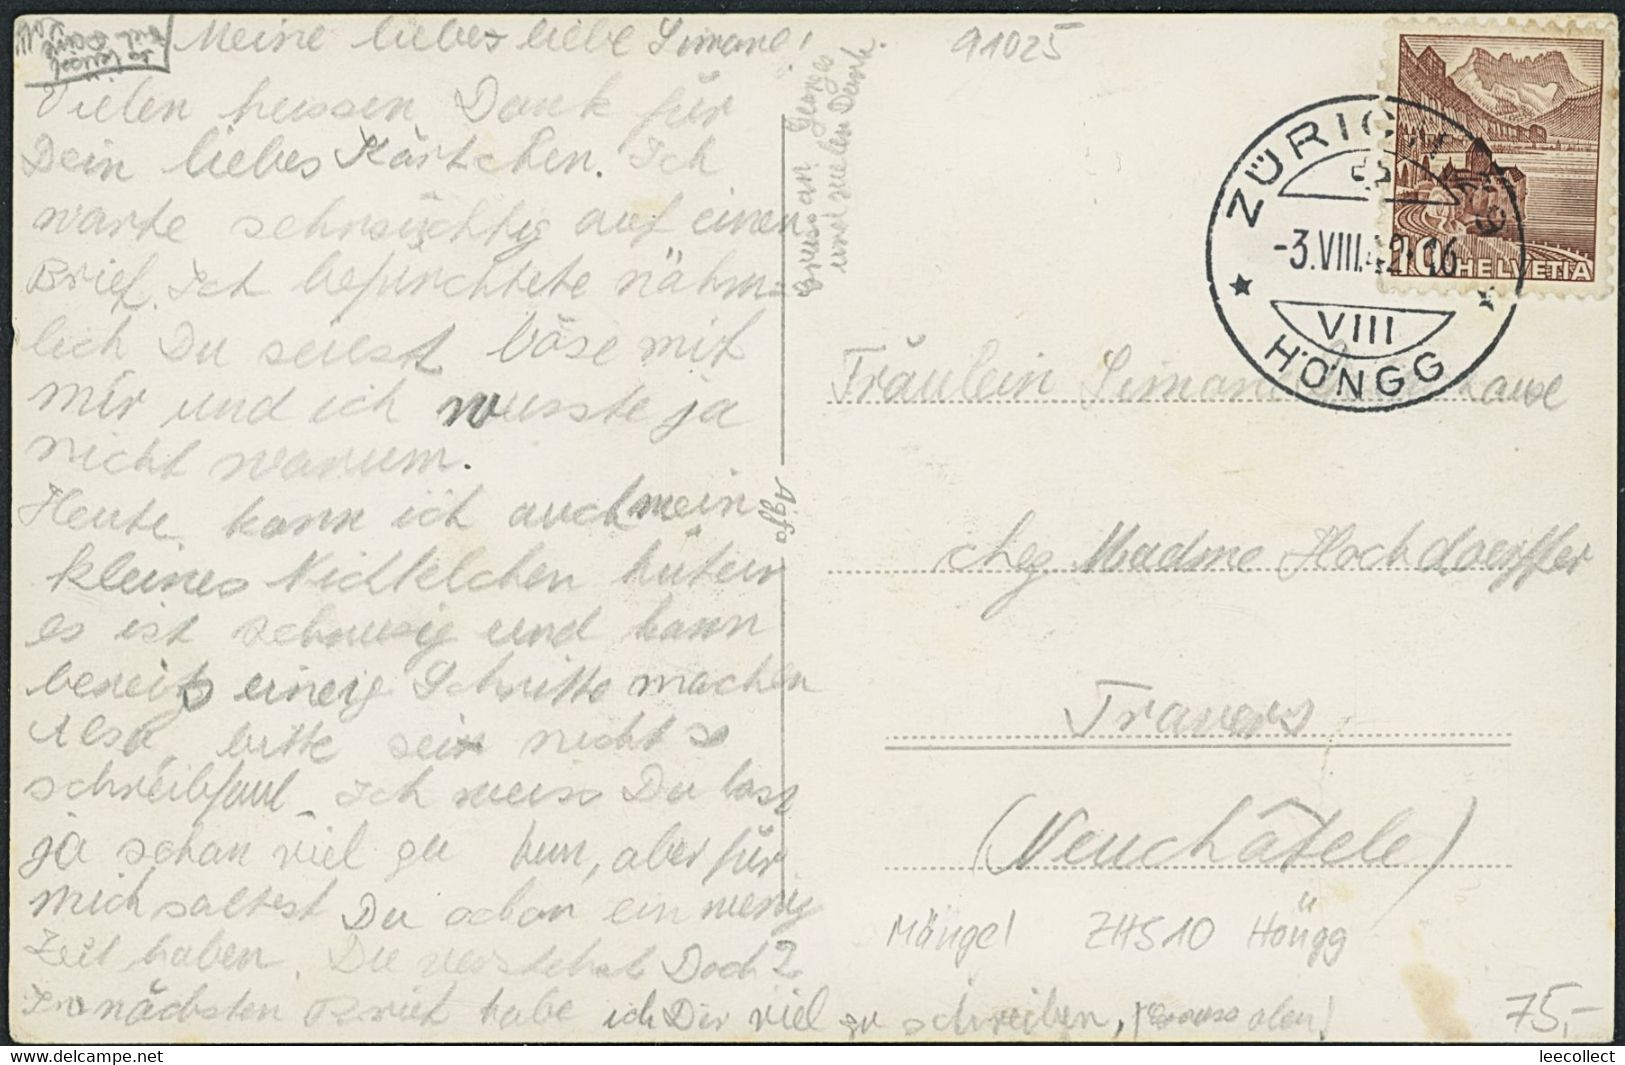 Meine liebe, liebe Simone!
Vielen heissen Dank für
Dein liebes Kärtchen. Ich
warte sehnsüchtig auf einen
Brief. Ich befürchtete nähm-
lich Du seiest böse mit
mir und ich wusste ja
nicht warum.
Heute kann ich auch mein
kleines Nickelchen hüten
es ist schneeig und kann
bereits einige Schritte machen
Also, bitte sei nicht so
schreibfaul. Ich weiss Du hast
ja schon viel zu tun, aber für
mich solltest Du schon ein wenig
Zeit haben. Du verstehst Doch?
Im nächsten Brief habe ich Dir viel zu schreiben,
Gruss an Georges
und vielen Dank.
Agfa
91025
ZÜRICH
-3.VIII.42-16
VIII
HÖNGG
10 HELVETIA
Fräulein Simone
chez Madme Hochdoerffer
Travers
(Neuchâtele)
Mängel ZH510 Höngg
75,-
leecollect